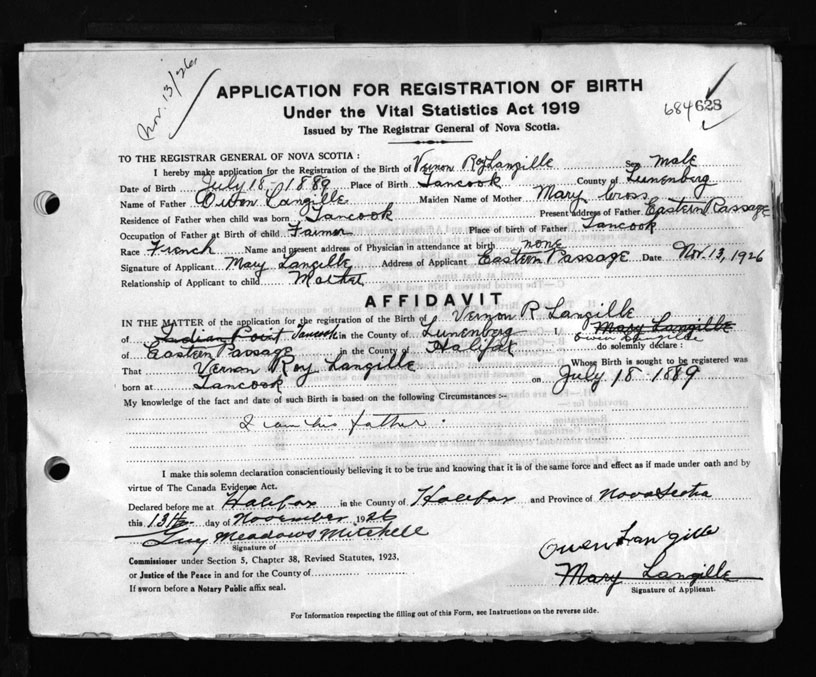 Nov. 13/26
APPLICATION FOR REGISTRATION OF BIRTH
Under the Vital Statistics Act 1919
684 628
Issued by The Registrar General of Nova Scotia.
TO THE REGISTRAR GENERAL OF NOVA SCOTIA :
I hereby make application for the Registration of the Birth of Vernon Roy Langille Sex male
Date of Birth July 18, 1889 Place of Birth Tancook County of Lunenberg
Name of Father Owen Langille Maiden Name of Mother Mary Cross
Residence of Father when child was born Tancook Present address of Father Eastern Passage
Occupation of Father at Birth of child Farmer Place of birth of Father Tancook
Race French Name and present address of Physician in attendance at birth none
Signature of Applicant Mary Langille Address of Applicant Eastern Passage Date Nov. 13, 1926
Relationship of Applicant to child Mother
AFFIDAVIT
IN THE MATTER of the application for the registration of the Birth of Vernon R Langille
of Indian Point Tancook in the County of Lunenberg I/ Mary Langille
Owen Langille
of Eastern Passage in the County of Halifax do solemnly declare :
That Vernon Roy Langille Whose Birth is sought to be registered was
born at Tancook on July 18 - 1889
My knowledge of the fact and date of such Birth is based on the following Circumstances :-
I am his father.
I make this solemn declaration conscientiously believing it to be true and knowing that it is of the same force and effect as if made under oath and by
virtue of The Canada Evidence Act.
Declared before me at Halifax in the County of Halifax and Province of Nova Scotia
this 13th day of November 1926
Guy Meadows Mitchell
Owen Langille
Signature of
Commissioner under Section 5, Chapter 38, Revised Statutes, 1923,
or Justice of the Peace in and for the County of
Mary Langille
If sworn before a Notary Public affix seal.
Signature of Applicant.
For Information respecting the filling out of this Form, see Instructions on the reverse side.